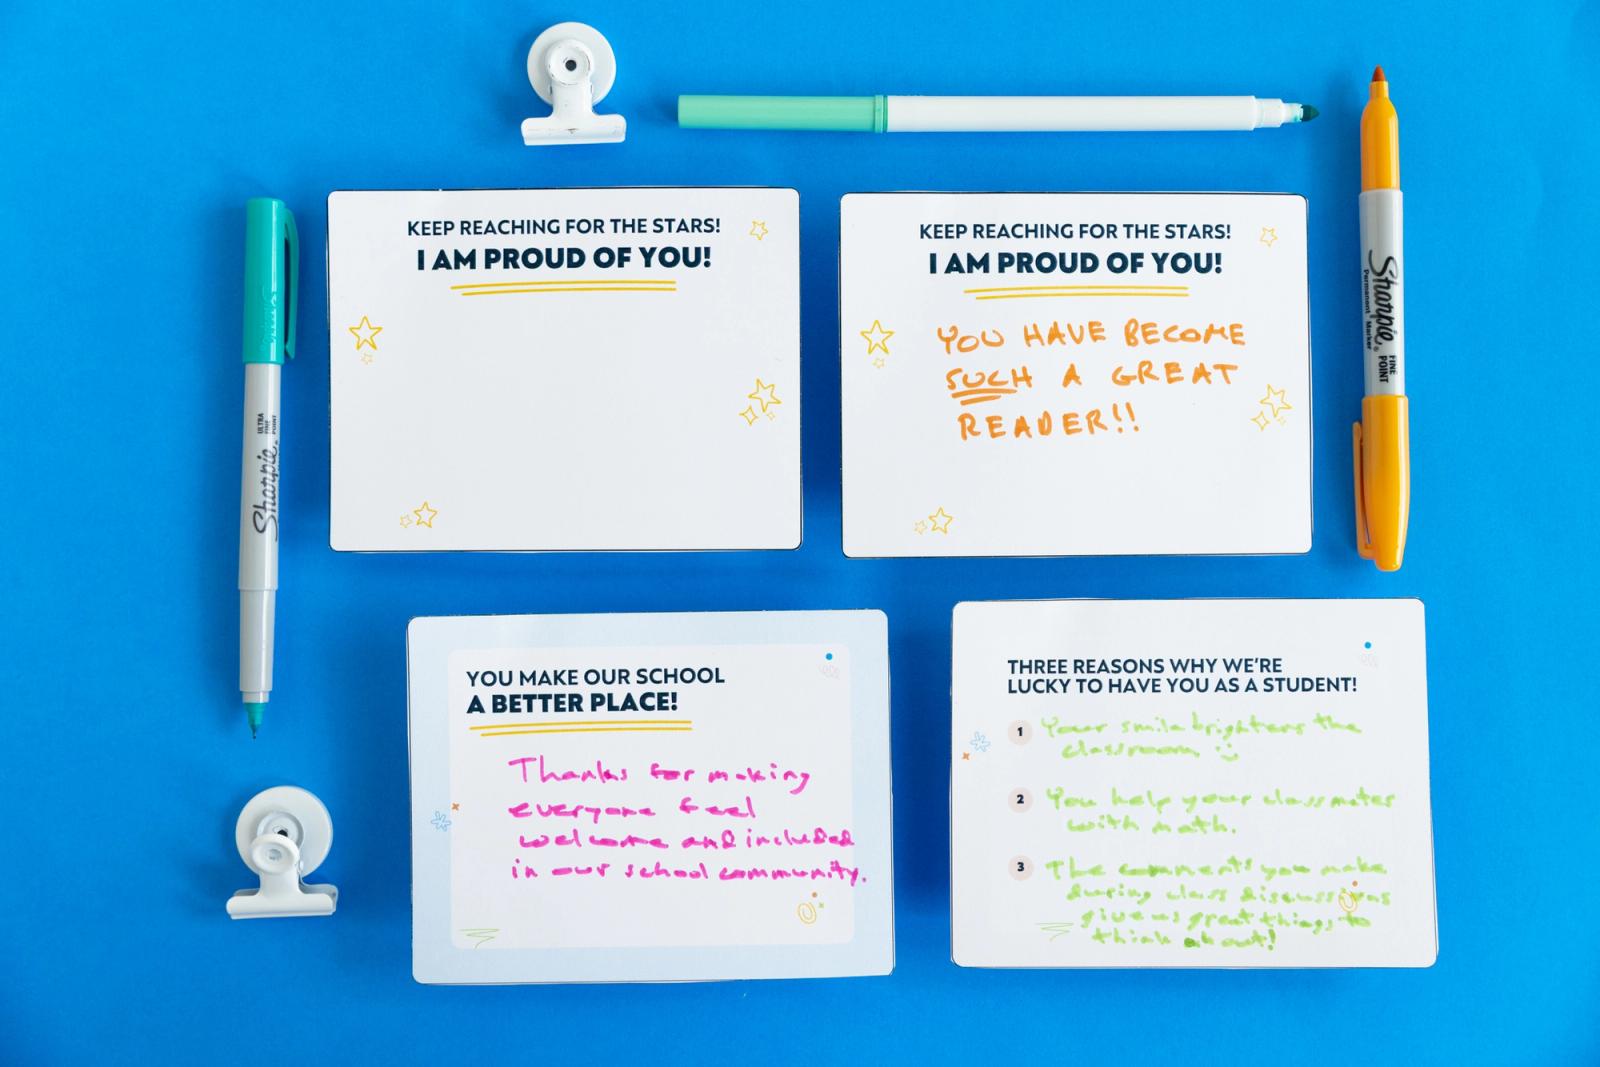 KEEP REACHING FOR THE STARS!
I AM PROUD OF YOU!
KEEP REACHING FOR THE STARS!
I AM PROUD OF YOU!
YOU HAVE BECOME
SUCH A GREAT
READER!!
Sharpie
Permanent Marker
FINE
POINT
Sharpie
ULTRA
FINE
POINT
YOU MAKE OUR SCHOOL
A BETTER PLACE!
Thanks for making
everyone feel
welcome and included
in our school community.
THREE REASONS WHY WE'RE
LUCKY TO HAVE YOU AS A STUDENT!
1 Your smile brightens the
classroom :)
2 You help your classmates
with math.
3 The comments you make
during class discussions
give us great things to
think about!